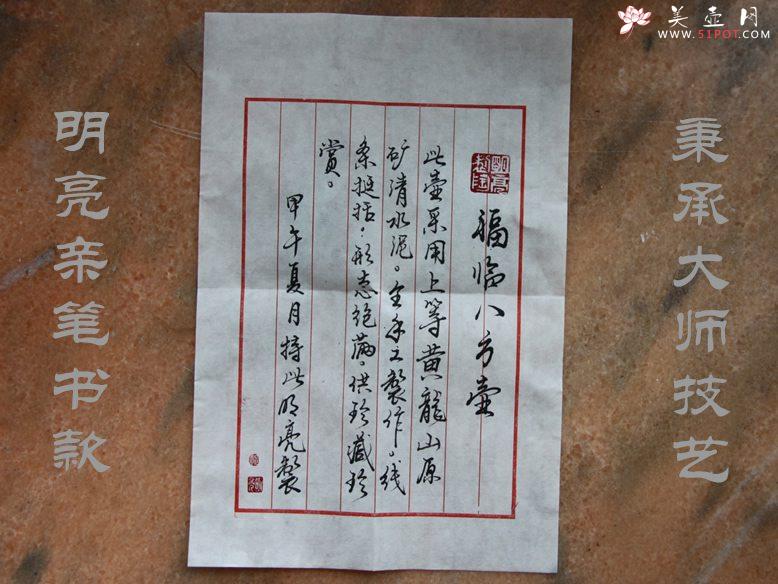 美壶网
WWW.51POT.COM
秉承大师技艺
明亮制陶
福临八方壶
此壶采用上等黄龍山原
矿清水泥。全手工製作。线
条挺括！形态饱满。供珍藏珍
賞。
甲午夏月持此明亮製
明亮亲笔书款